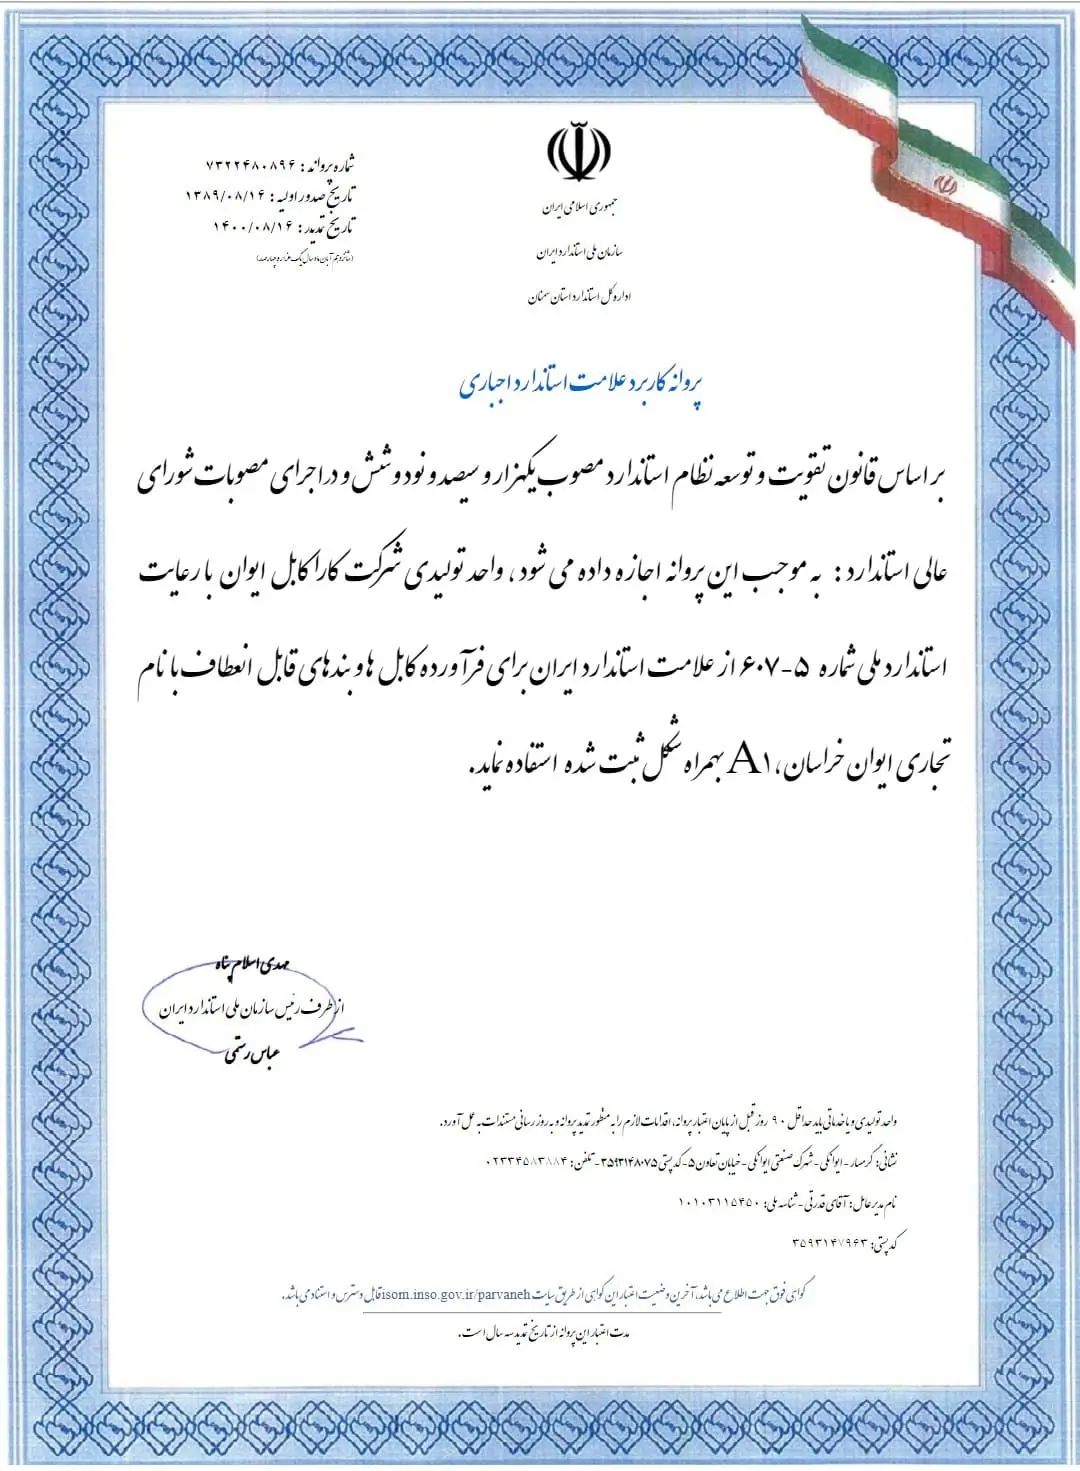 شماره پروانه : ۷۳۲۲۴۸۰۸۹۶
تاریخ صدور اولیه : ۱۳۸۹/۰۸/۱۶
تاریخ تمدید : ۱۴۰۰/۰۸/۱۶
(شانزدهم آبان ماه سال یک هزار و چهارصد)
جمهوری اسلامی ایران
سازمان ملی استاندارد ایران
اداره کل استاندارد استان سمنان
پروانه کاربرد علامت استاندارد اجباری
بر اساس قانون تقویت و توسعه نظام استاندارد مصوب یکهزار و سیصد و نود و شش و در اجرای مصوبات شورای
عالی استاندارد : به موجب این پروانه اجازه داده می شود ، واحد تولیدی شرکت کارا کابل ایوان با رعایت
استاندارد ملی شماره ۵-۶۰۷ از علامت استاندارد ایران برای فرآورده کابل ها و بندهای قابل انعطاف با نام
تجاری ایوان خراسان، A۱ بهمراه شکل ثبت شده استفاده نماید.
مهدی اسلام پناه
از طرف رئیس سازمان ملی استاندارد ایران
عباس رستمی
واحد تولیدی و یا خدماتی باید حداقل ۹۰ روز قبل از پایان اعتبار پروانه، اقدامات لازم را به منظور تمدید پروانه و به روز رسانی مستندات به عمل آورد.
نشانی: گرمسار - ایوانکی - شهرک صنعتی ایوانکی - خیابان تعاون ۵- کد پستی ۳۵۹۳۱۴۸۰۷۵- تلفن: ۰۲۳۳۴۵۸۳۸۸۴
نام مدیر عامل: آقای قدرتی - شناسه ملی: ۱۰۱۰۳۱۱۵۴۵۰
کد پستی: ۳۵۹۳۱۴۷۹۶۳
گواهی فوق جهت اطلاع می باشد، آخرین وضعیت اعتبار این گواهی از طریق سایت isom.inso.gov.ir/parvaneh قابل دسترس و استناد می باشد.
مدت اعتبار این پروانه از تاریخ تمدید سه سال است.